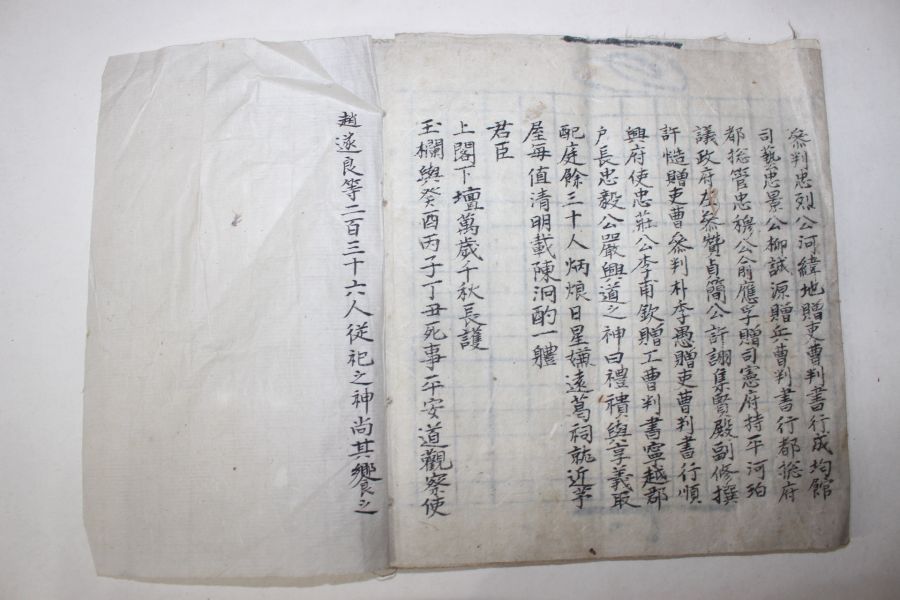 參判忠烈公河緯地贈吏曹判書行成均館
司藝忠景公柳誠源贈兵曹判書行都捴府
都捴管忠穆公俞應孚贈司憲府持平河珀
議政府左參贊貞簡公許詡集賢殿副修撰
許慥贈吏曹參判朴季愚贈吏曹判書行順
興府使忠莊公李甫欽贈工曹判書寧越郡
戶長忠毅公嚴興道之神曰禮積與享義取
配庭餘三十人炳烺日星嫌遠葛祠就近芋
屋每值清明載陳泂酌一軆
君臣
上閣下壇萬歲千秋長護
玉欄與癸酉丙子丁丑死事平安道觀察使
趙遂良等二百三十六人從祀之神尚其饗之